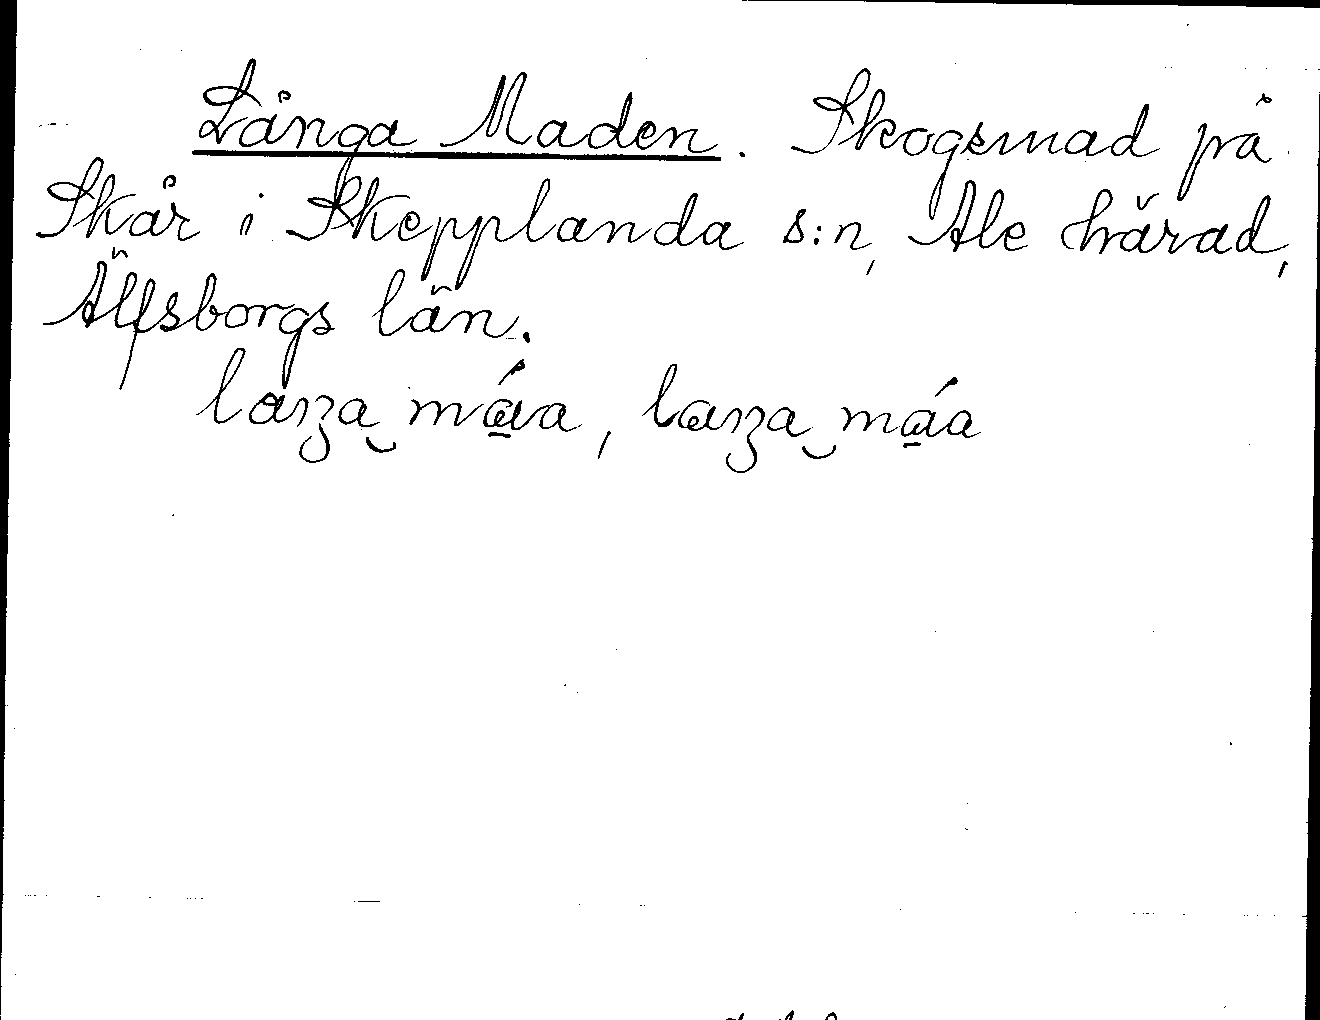 Långa Maden. Skogsmad på
Skår i Skepplanda s:n, Ale härad,
Älfsborgs län.